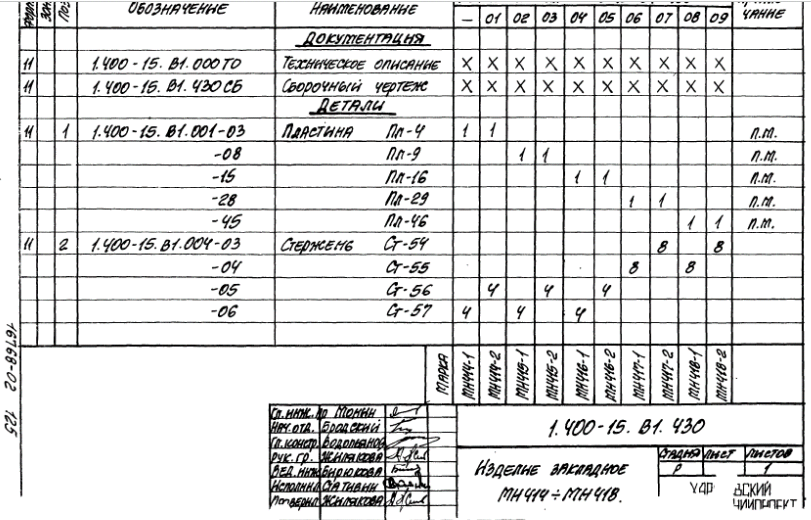 ЗОН ПОЗ ОБОЗНАЧЕНИЕ НАИМЕНОВАНИЕ – 01 02 03 04 05 06 07 08 09 ЧАНИЕ
ДОКУМЕНТАЦИЯ
11 1.400-15. В1.000ТО ТЕХНИЧЕСКОЕ ОПИСАНИЕ X X X X X X X X X X
11 1.400-15. В1.430СБ СБОРОЧНЫЙ ЧЕРТЕЖ X X X X X X X X X X
ДЕТАЛИ
11 1 1.400-15. В1.001-03 ПЛАСТИНА Пл-4 1 1 п.м.
-08 Пл-9 1 1 п.м.
-15 Пл-16 1 1 п.м.
-28 Пл-29 1 1 п.м.
-45 Пл-46 1 1 п.м.
11 2 1.400-15. В1.004-03 СТЕРЖЕНЬ Ст-54 8 8
-04 Ст-55 8 8
-05 Ст-56 4 4 4
-06 Ст-57 4 4 4
16768-02 125
МАРКА МН414-1 МН414-2 МН415-1 МН415-2 МН416-1 МН416-2 МН417-1 МН417-2 МН418-1 МН418-2
Гл. инж. пр Монин
Нач. отд. Бродский
Гл. констр. Водопьянов
Рук. гр. Жилякова
Вед. инж Бирюкова
Исполнил
Проверил Жилякова
1.400-15. В1. 430
ИЗДЕЛИЕ ЗАКЛАДНОЕ
МН414÷МН418.
СТАДИЯ ЛИСТ ЛИСТОВ
Р 1
ВСКИЙ